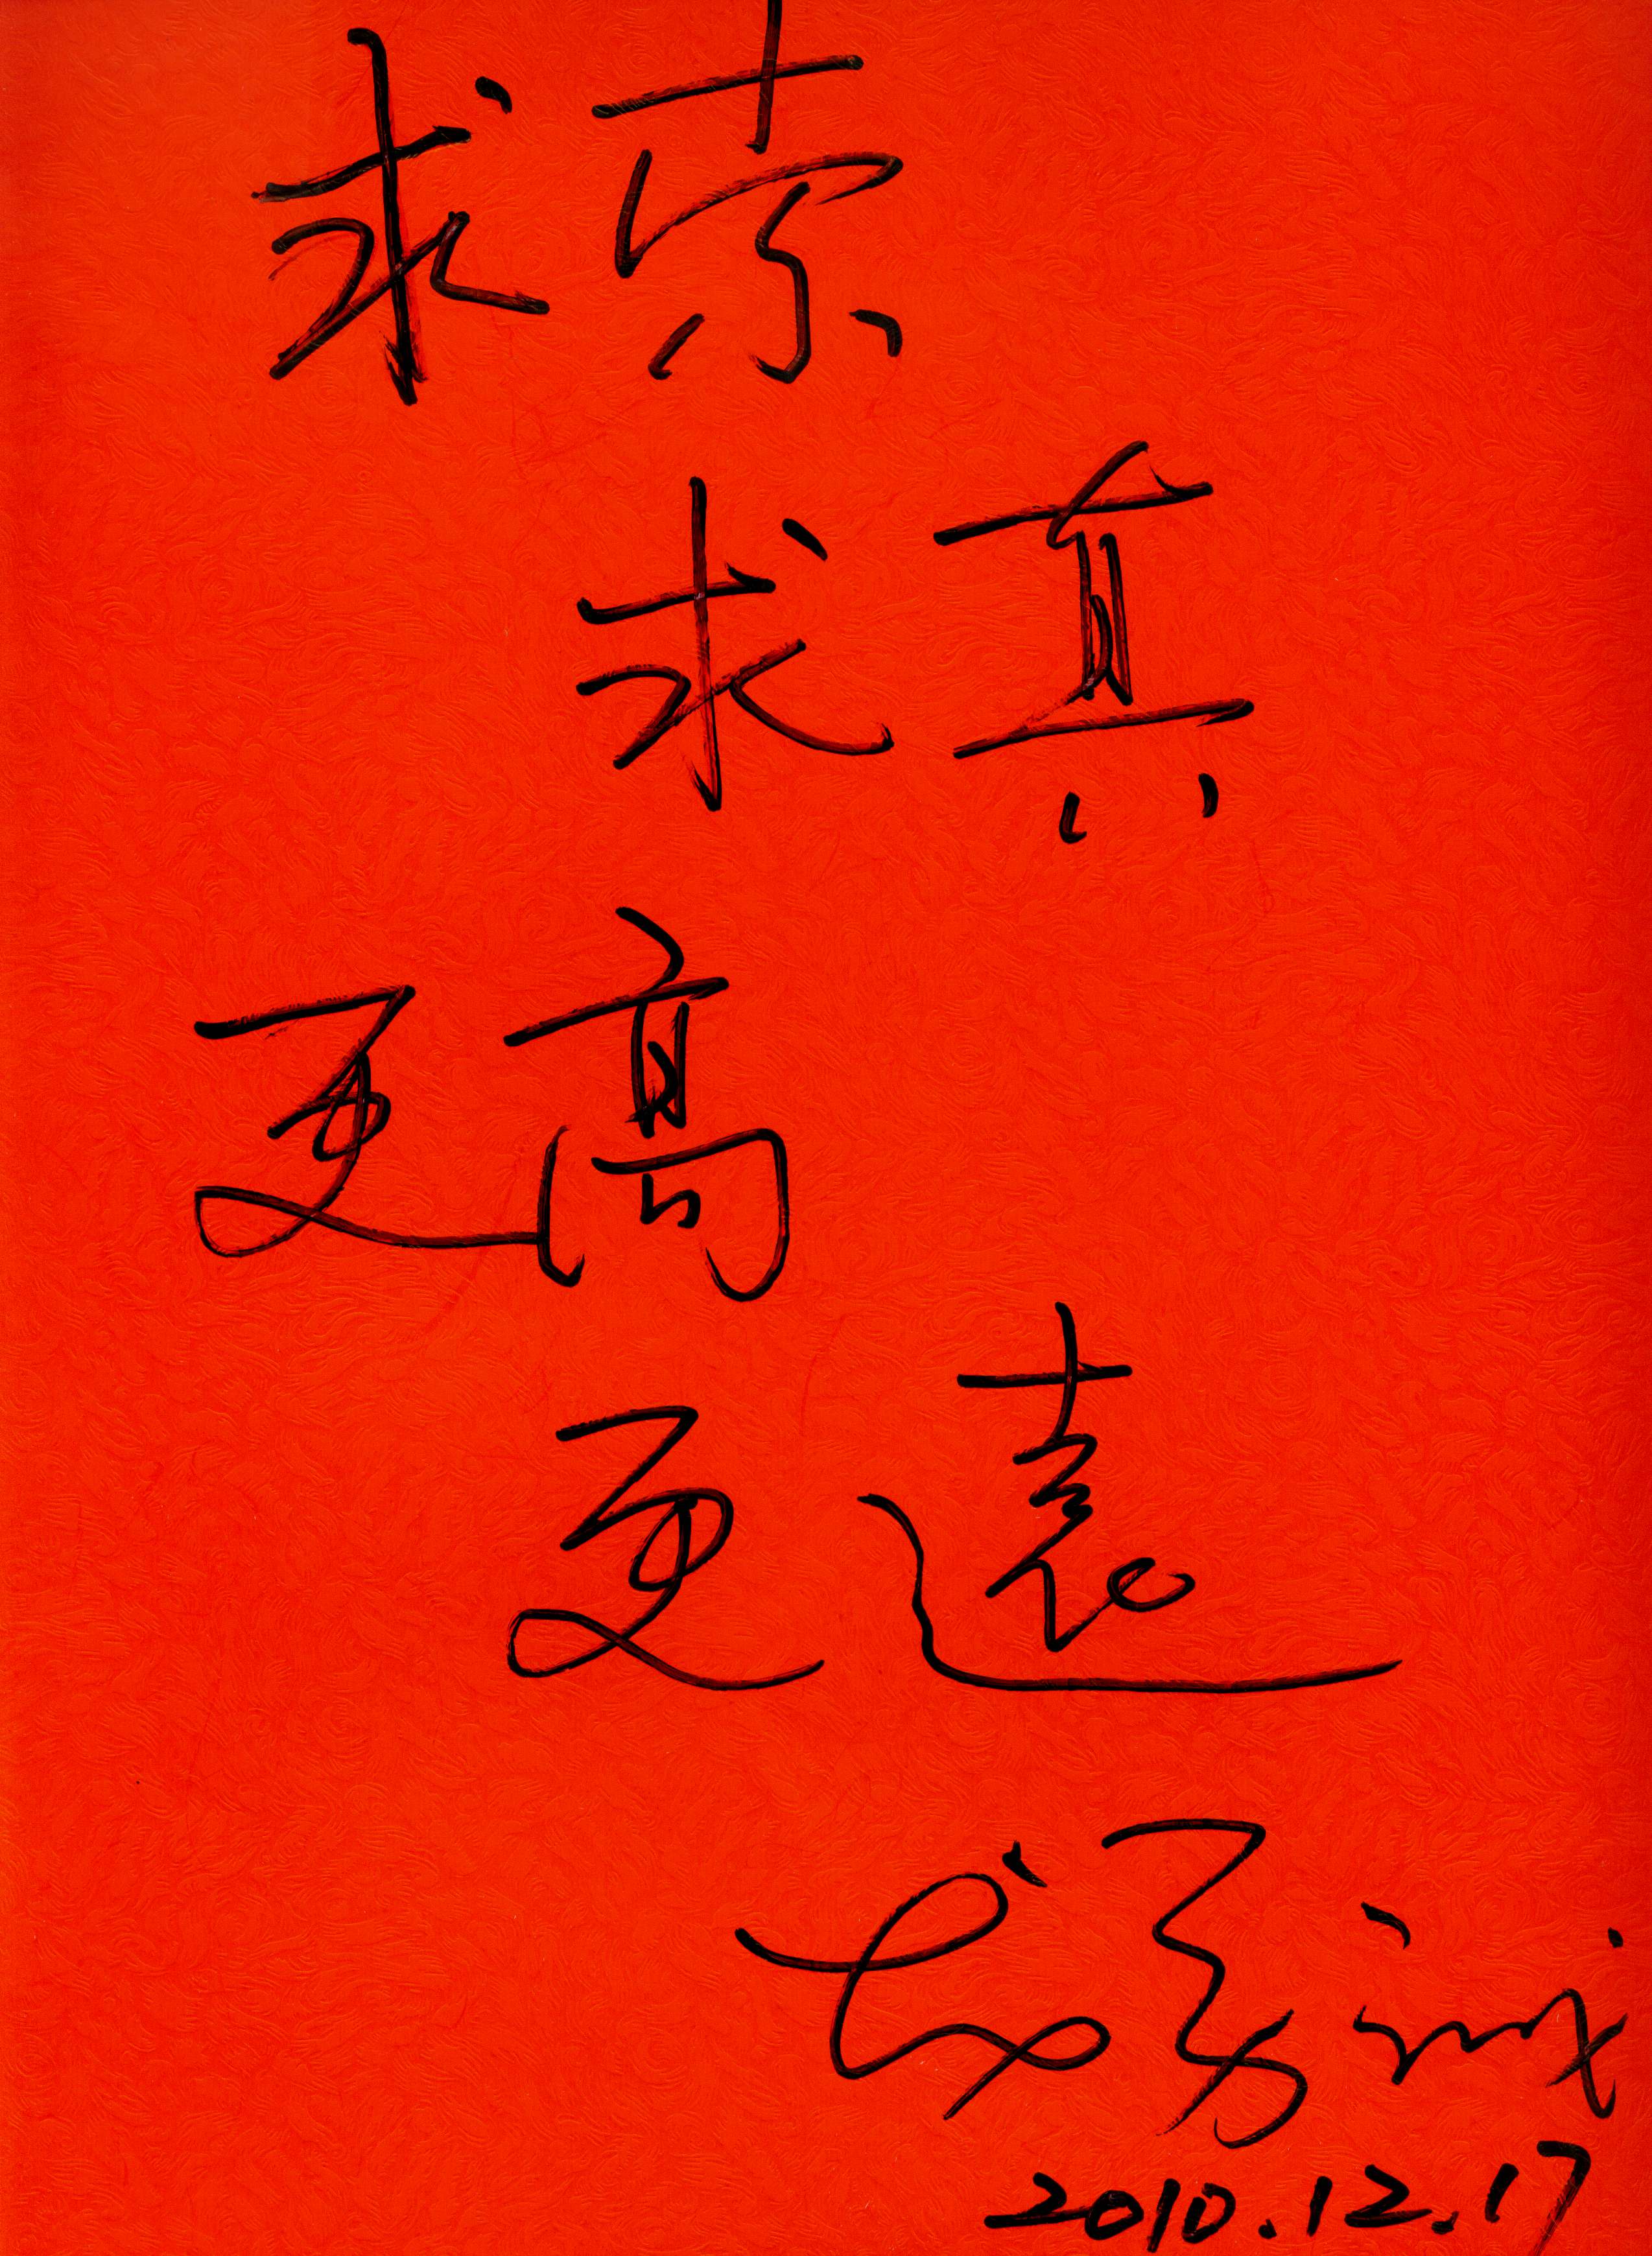 求索
求真
更高
更遠
2010.12.17